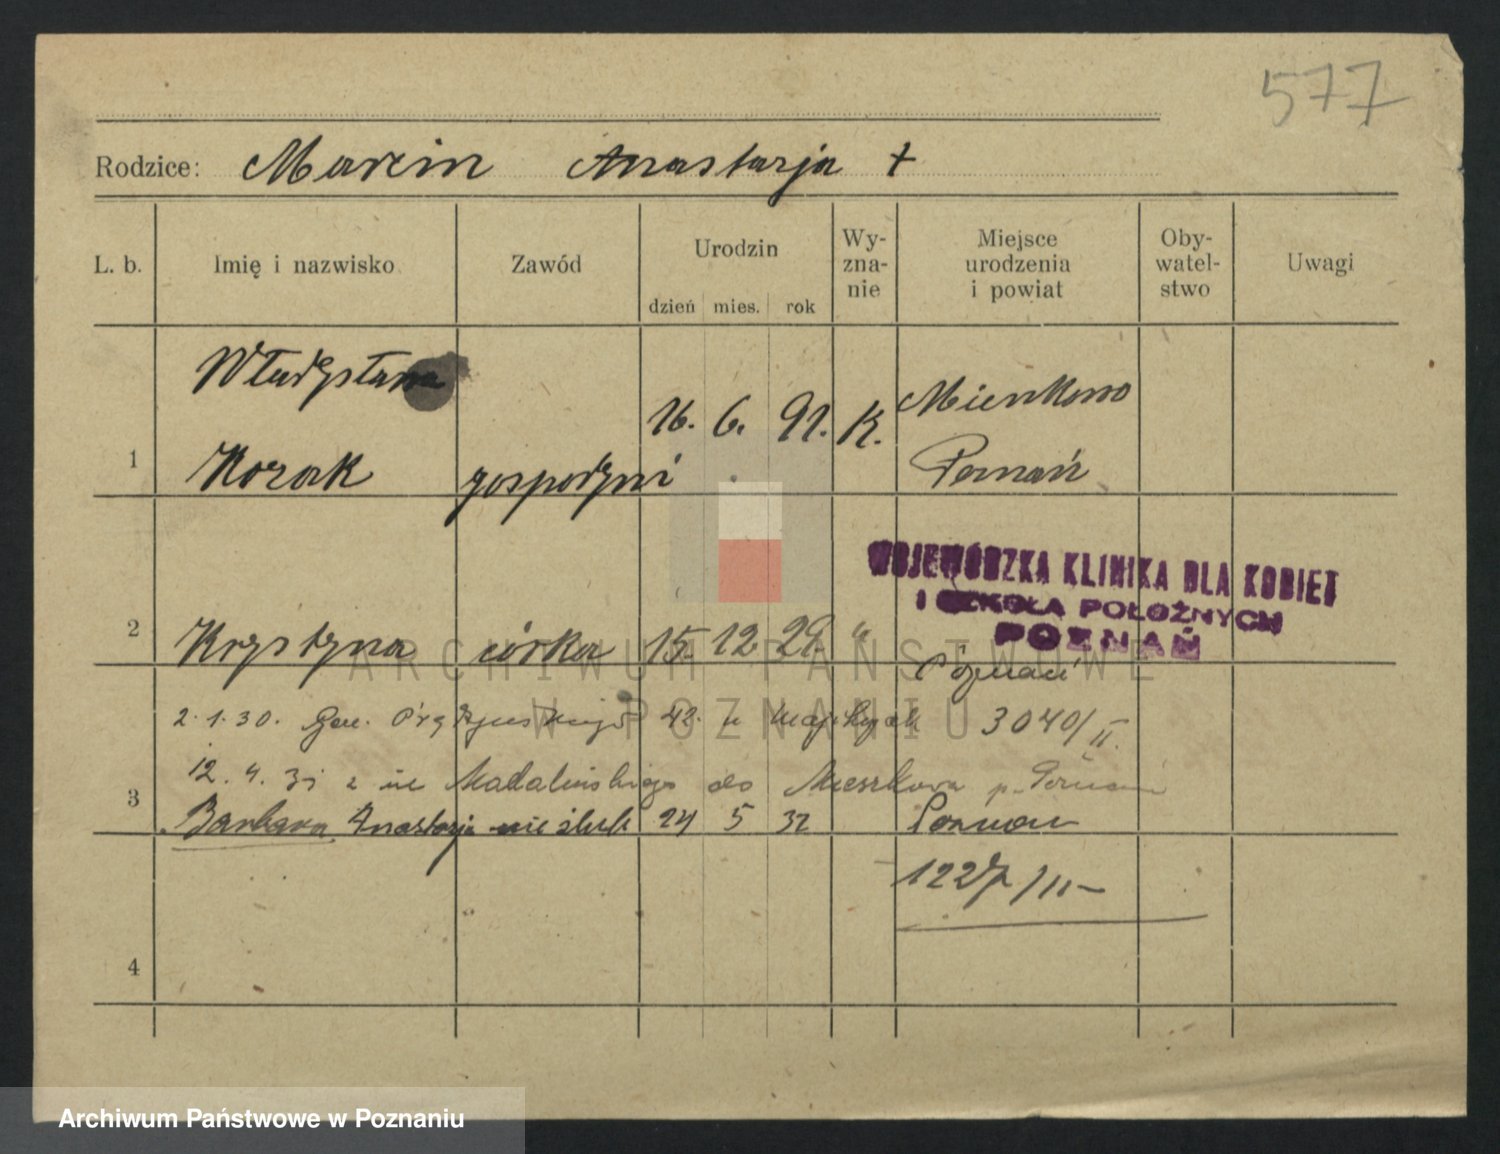 577
Rodzice: Marcin Anastazja +
L. b. Imię i nazwisko Zawód Urodzin Wy-zna-nie Miejsce urodzenia i powiat Oby-watel-stwo Uwagi
dzień mies. rok
Władysława
16. 6. 91. K. Mienkowo
1 Kozak gospodyni Poznań
WOJEWÓDZKA KLINIKA DLA KOBIET
I SZKOŁA POŁOŻNYCH
POZNAŃ
2 Krystyna córka 15. 12. 29. "
Poznań
ARCHIWUM PAŃSTWOWE
W POZNANIU
2.1.30. Gen. 42. u 3040/II.
12.4.31 z ul Madalińskiego do Mieszkowa p. Poznań
3 Barbara Anastazja nieślub 24 5 32 Poznań
1227/II-
4
Archiwum Państwowe w Poznaniu